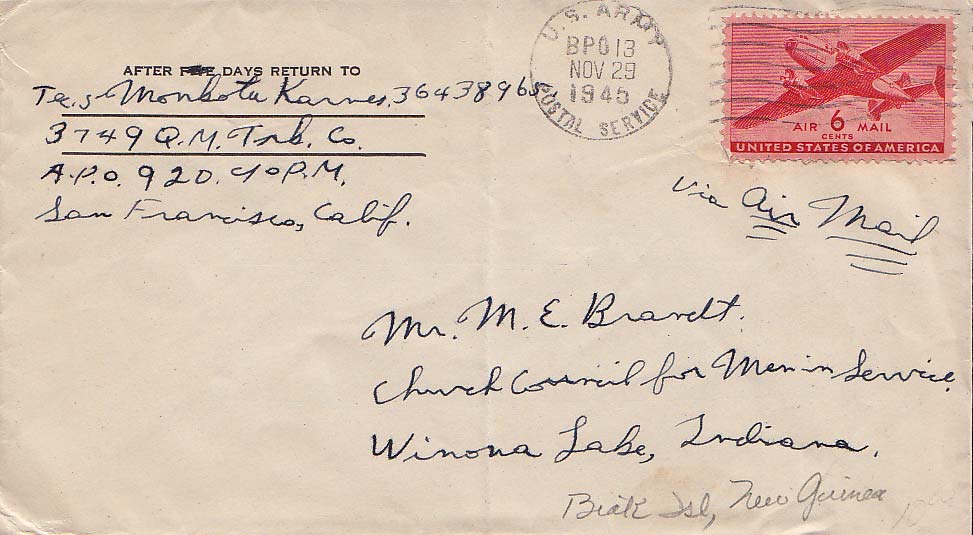 AFTER FIVE DAYS RETURN TO
Tec. 5 Monbota Karnes. 36438965
3749 Q.M. Trk. Co.
A.P.O. 920. c/o P.M.
San Francisco, Calif.
U.S. ARMY
BPO 13
NOV 29
1945
POSTAL SERVICE
AIR 6 MAIL
CENTS
UNITED STATES OF AMERICA
Via Air Mail
Mr. M. E. Brandt.
Church Council for Men in Service.
Winona Lake, Indiana.
Biak Isl, New Guinea